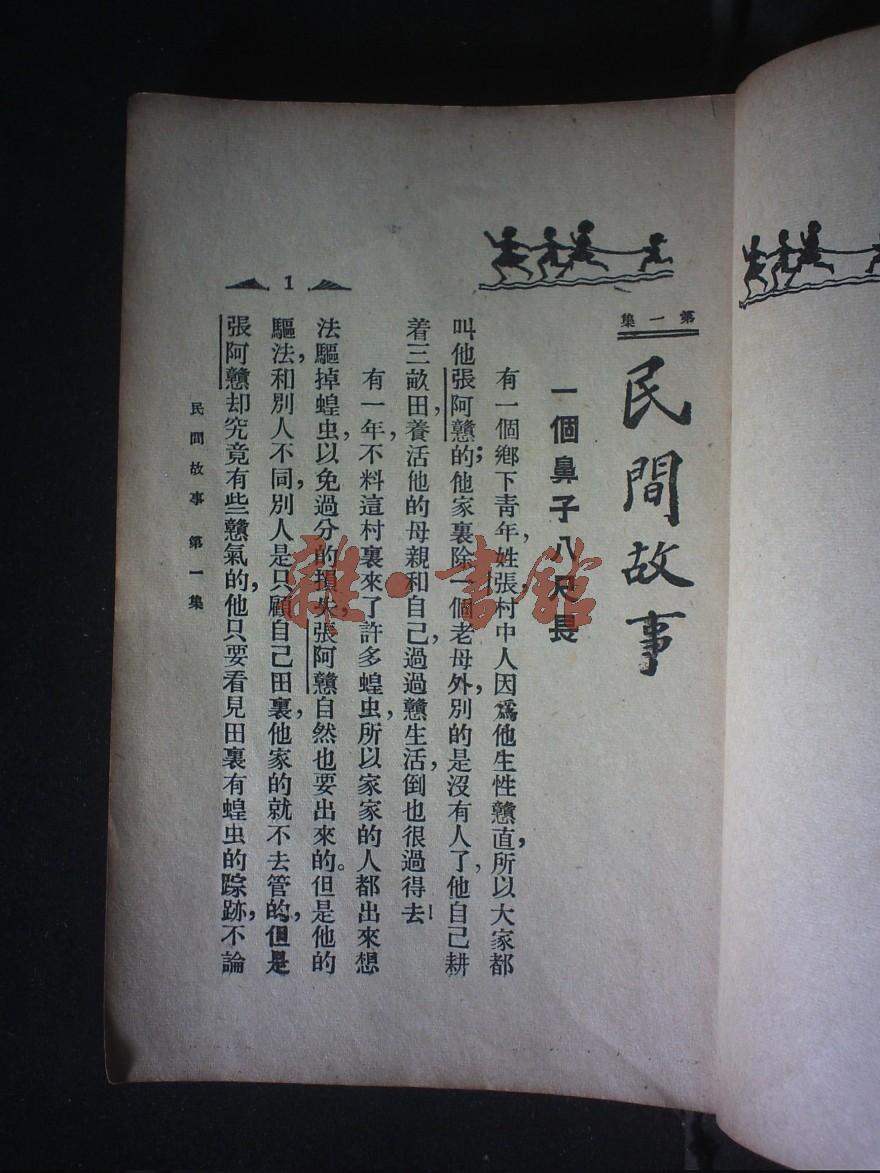 第一集
民間故事
一個鼻子八尺長
有一個鄉下靑年，姓張，村中人因爲他生性戇直，所以大家都
叫他張阿戇的；他家裏除一個老母外，別的是沒有人了，他自己耕
着三畝田，養活他的母親和自己，過過戇生活，倒也很過得去！
有一年，不料這村裏來了許多蝗虫，所以家家的人都出來想
法驅掉蝗虫，以免過分的損失，張阿戇自然也要出來的。但是他的
驅法，和別人不同，別人是只顧自己田裏，他家的就不去管的，但是
張阿戇却究竟有些戇氣的，他只要看見田裏有蝗虫的踪跡，不論
1
民間故事 第一集
雜·書館